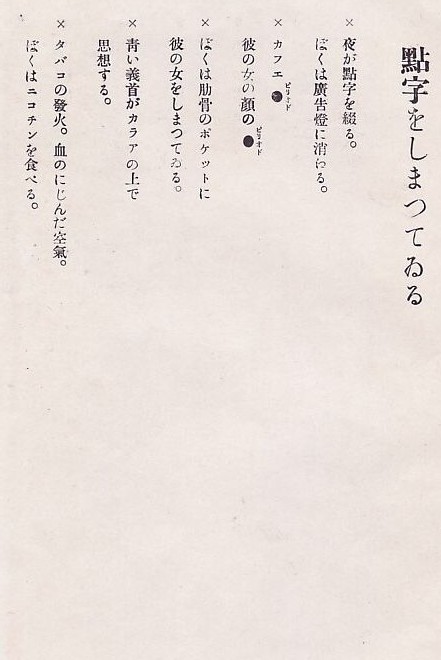 點字をしまつてゐる
× 夜が點字を綴る。
ぼくは廣告燈に消える。
× カフエ●ピリオド
彼の女の顏の●ピリオド
× ぼくは肋骨のポケツトに
彼の女をしまつてゐる。
× 靑い義首がカラアの上で
思想する。
× タバコの發火。血のにじんだ空氣。
ぼくはニコチンを食べる。